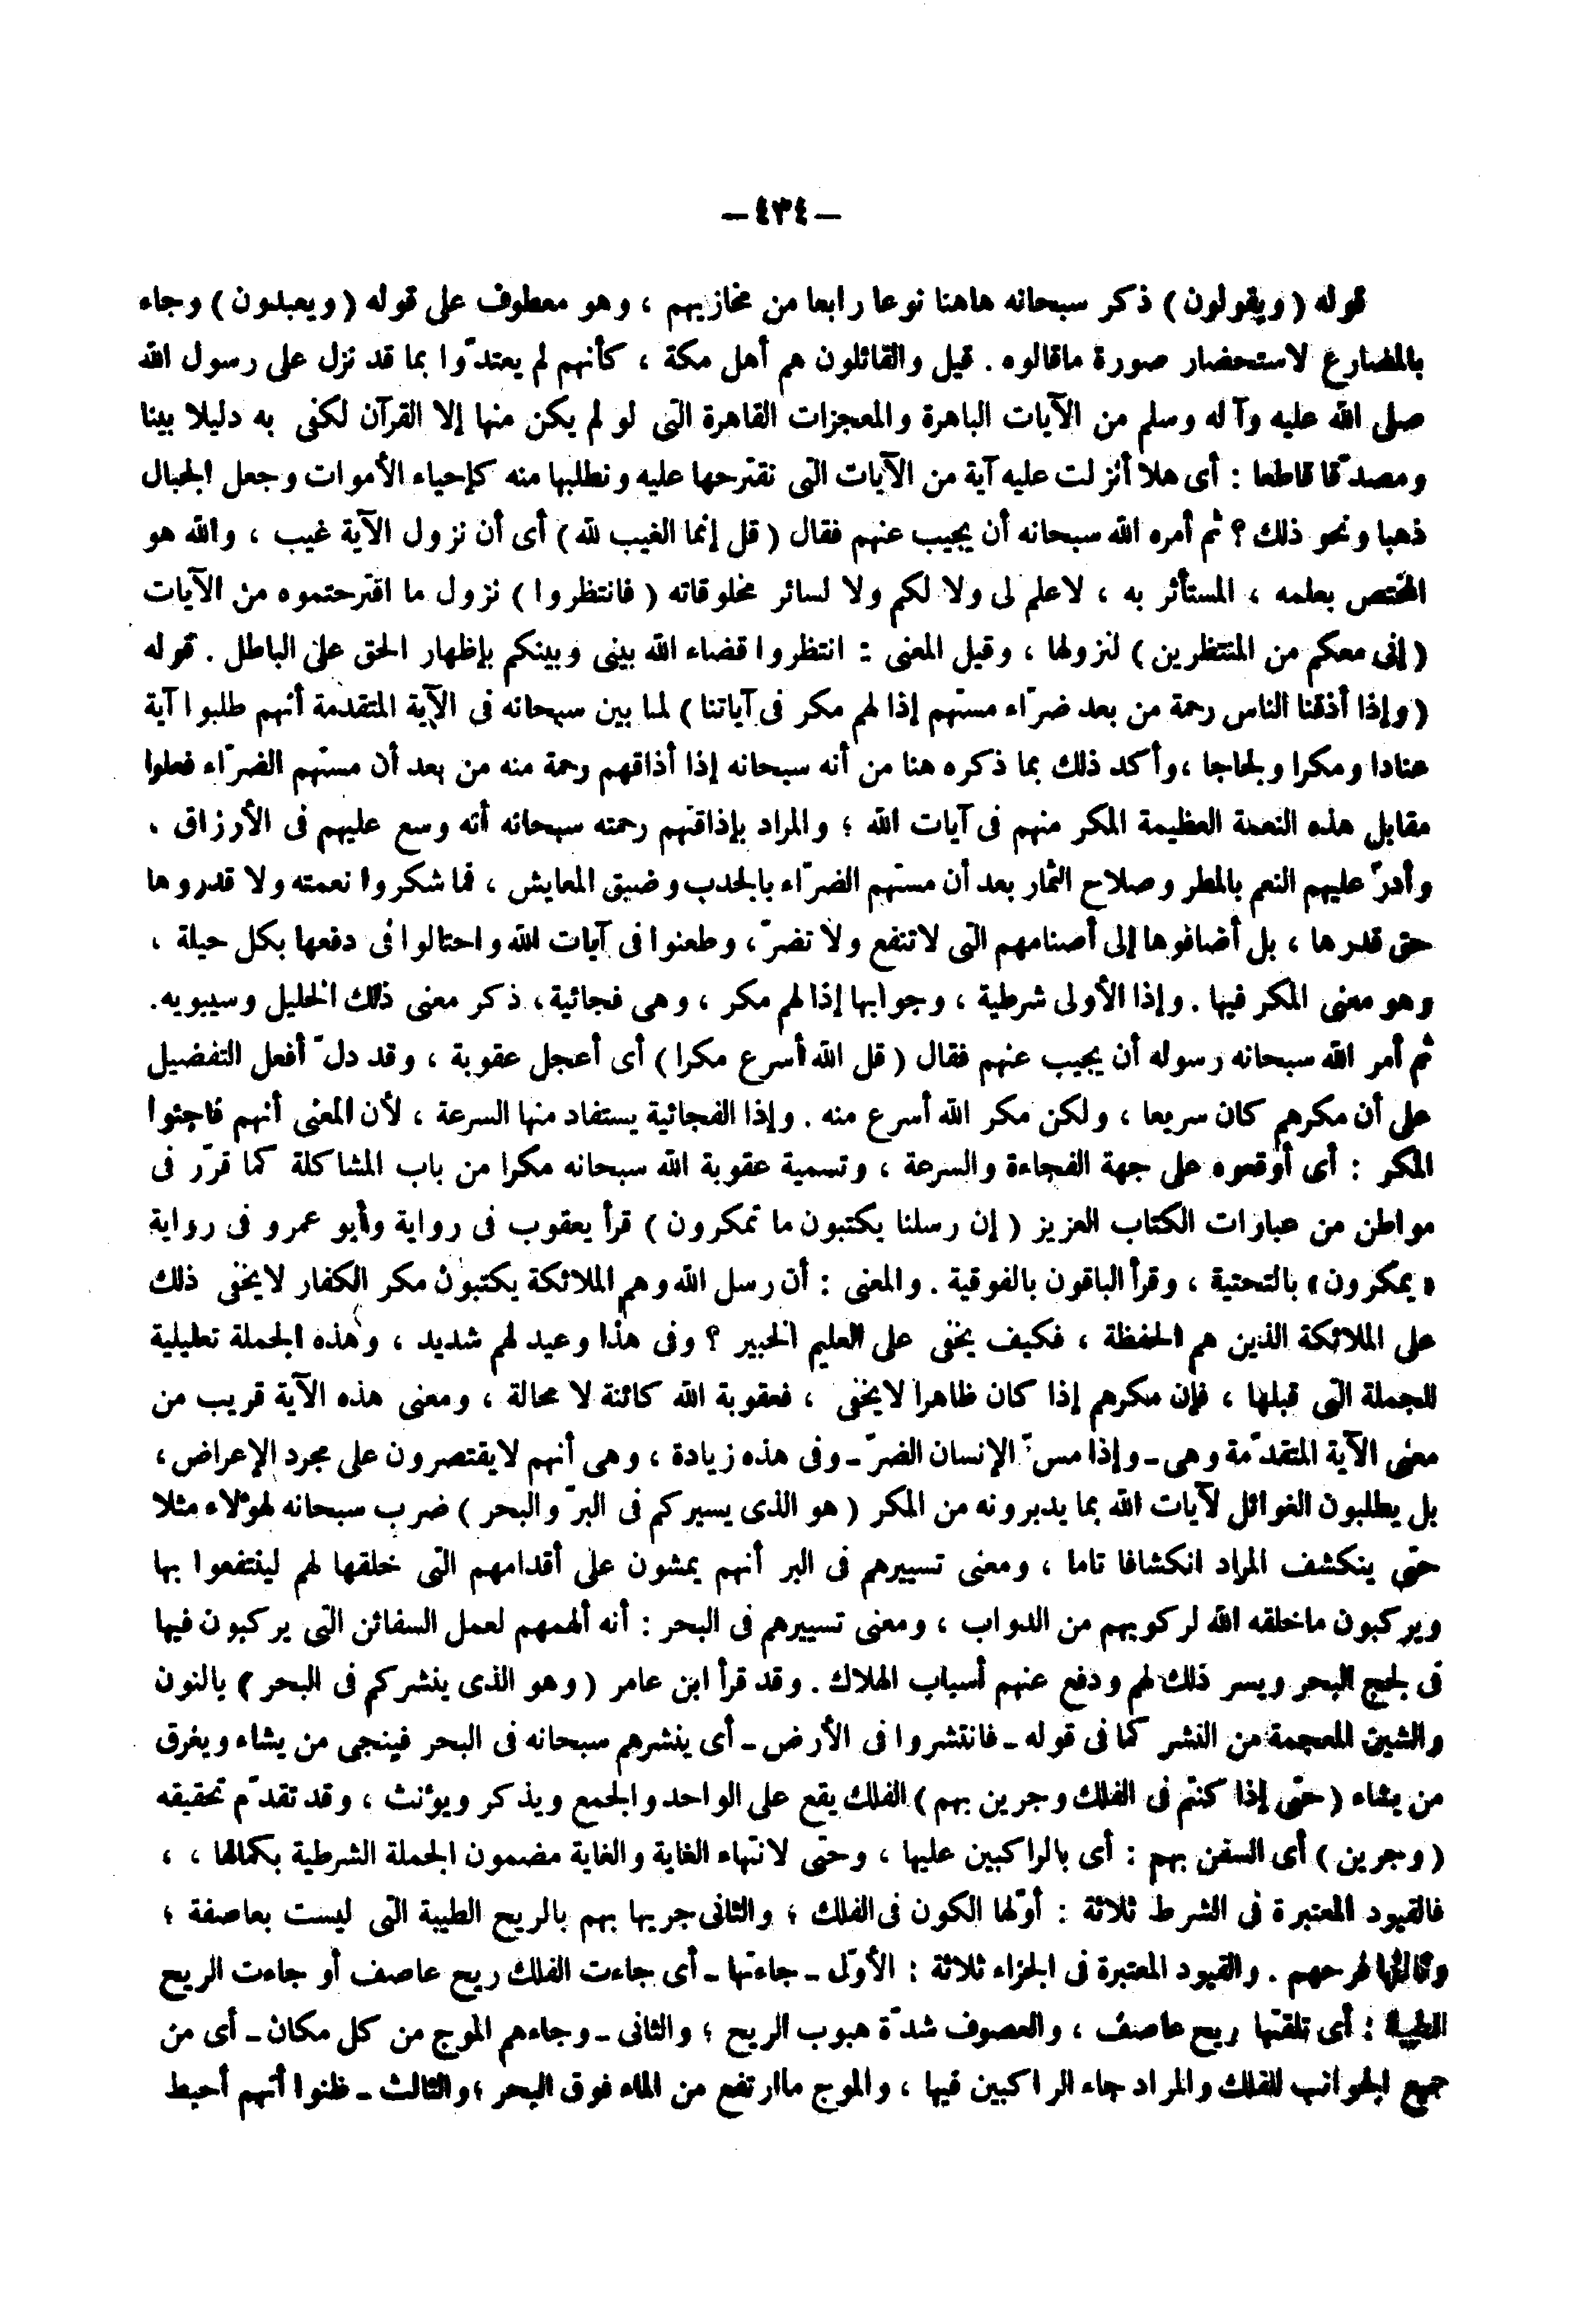 – ٤٣٤ –
قوله ( ويقولون ) ذكر سبحانه هاهنا نوعا رابعا من مخازيهم ، وهو معطوف على قوله ( ويعبدون ) وجاء
بالمضارع لاستحضار صورة ماقالوه . قيل والقائلون هم أهل مكة ، كأنهم لم يعتدّوا بما قد نزل على رسول الله
صلى الله عليه وآله وسلم من الآيات الباهرة والمعجزات القاهرة التى لو لم يكن منها إلا القرآن لكفى به دليلا بينا
ومصدّقا قاطعا : أى هلا أنزلت عليه آية من الآيات التى نقترحها عليه ونطلبها منه كإحياء الأموات وجعل الجبال
ذهبا ونحو ذلك ؟ ثم أمره الله سبحانه أن يجيب عنهم فقال ( قل إنما الغيب لله ) أى أن نزول الآية غيب ، والله هو
المختص بعلمه ، المستأثر به ، لاعلم لى ولا لكم ولا لسائر مخلوقاته ( فانتظروا ) نزول ما اقترحتموه من الآيات
( إنى معكم من المنتظرين ) لنزولها ، وقيل المعنى : انتظروا قضاء الله بينى وبينكم بإظهار الحق على الباطل . قوله
( وإذا أذقنا الناس رحمة من بعد ضرّاء مستهم إذا لهم مكر فى آياتنا ) لما بين سبحانه فى الآية المتقدمة أنهم طلبوا آية
عنادا ومكرا ولجاجا ، وأكد ذلك بما ذكره هنا من أنه سبحانه إذا أذاقهم رحمة منه من بعد أن مستهم الضرّاء فعلوا
مقابل هذه النعمة العظيمة المكر منهم فى آيات الله ؛ والمراد بإذاقتهم رحمته سبحانه أنه وسع عليهم فى الأرزاق ،
وأدرّ عليهم النعم بالمطر وصلاح الثمار بعد أن مستهم الضرّاء بالجدب وضيق المعايش ، فما شكروا نعمته ولا قدروها
حق قدرها ، بل أضافوها إلى أصنامهم التى لاتنفع ولا تضرّ ، وطعنوا فى آيات الله واحتالوا فى دفعها بكل حيلة ،
وهو معنى المكر فيها . وإذا الأولى شرطية ، وجوابها إذا لهم مكر ، وهى فجائية ، ذكر معنى ذلك الخليل وسيبويه.
ثم أمر الله سبحانه رسوله أن يجيب عنهم فقال ( قل الله أسرع مكرا ) أى أعجل عقوبة ، وقد دلّ أفعل التفضيل
على أن مكرهم كان سريعا ، ولكن مكر الله أسرع منه . وإذا الفجائية يستفاد منها السرعة ، لأن المعنى أنهم فاجئوا
المكر : أى أوقعوه على جهة الفجاءة والسرعة ، وتسمية عقوبة الله سبحانه مكرا من باب المشاكلة كما قرّر فى
مواطن من عبارات الكتاب العزيز ( إن رسلنا يكتبون ما تمكرون ) قرأ يعقوب فى رواية وأبو عمرو فى رواية
« يمكرون » بالتحتية ، وقرأ الباقون بالفوقية . والمعنى : أن رسل الله وهم الملائكة يكتبون مكر الكفار لايخفى ذلك
على الملائكة الذين هم الحفظة ، فكيف يخفى على العليم الخبير ؟ وفى هذا وعيد لهم شديد ، وهذه الجملة تعليلية
للجملة التى قبلها ، فإن مكرهم إذا كان ظاهرا لايخفى ، فعقوبة الله كائنة لا محالة ، ومعنى هذه الآية قريب من
معنى الآية المتقدّمة وهى ـ وإذا مسّ الإنسان الضرّ ـ وفى هذه زيادة ، وهى أنهم لايقتصرون على مجرد الإعراض ،
بل يطلبون الغوائل لآيات الله بما يدبرونه من المكر ( هو الذى يسيركم فى البرّ والبحر ) ضرب سبحانه لهؤلاء مثلا
حتى ينكشف المراد انكشافا تاما ، ومعنى تسييرهم فى البر أنهم يمشون على أقدامهم التى خلقها لهم لينتفعوا بها
ويركبون ماخلقه الله لركوبهم من الدواب ، ومعنى تسييرهم فى البحر : أنه ألهمهم لعمل السفائن التى يركبون فيها
فى لجج البحر ويسر ذلك لهم ودفع عنهم أسباب الهلاك . وقد قرأ ابن عامر ( وهو الذى ينشركم فى البحر ) بالنون
والشين المعجمة من النشر كما فى قوله ـ فانتشروا فى الأرض ـ أى ينشرهم سبحانه فى البحر فينجى من يشاء ويغرق
من يشاء ( حتى إذا كنتم فى الفلك وجرين بهم ) الفلك يقع على الواحد والجمع ويذكر ويؤنث ، وقد تقدّم تحقيقه
( وجرين ) أى السفن بهم : أى بالراكبين عليها ، وحتى لانتهاء الغاية والغاية مضمون الجملة الشرطية بكمالها ، ،
فالقيود المعتبرة فى الشرط ثلاثة : أوّلها الكون فى الفلك ؛ والثانى جريها بهم بالريح الطيبة التى ليست بعاصفة ؛
وثالثها فرحهم . والقيود المعتبرة فى الجزاء ثلاثة : الأوّل ـ جاءتها ـ أى جاءت الفلك ريح عاصف أو جاءت الريح
الطيبة : أى تلقتها ريح عاصف ، والعصوف شدّة هبوب الريح ؛ والثانى ـ وجاءهم الموج من كل مكان ـ أى من
جميع الجوانب للفلك والمراد جاء الراكبين فيها ، والموج ماارتفع من الماء فوق البحر ؛ والثالث ـ ظنوا أنهم أحيط